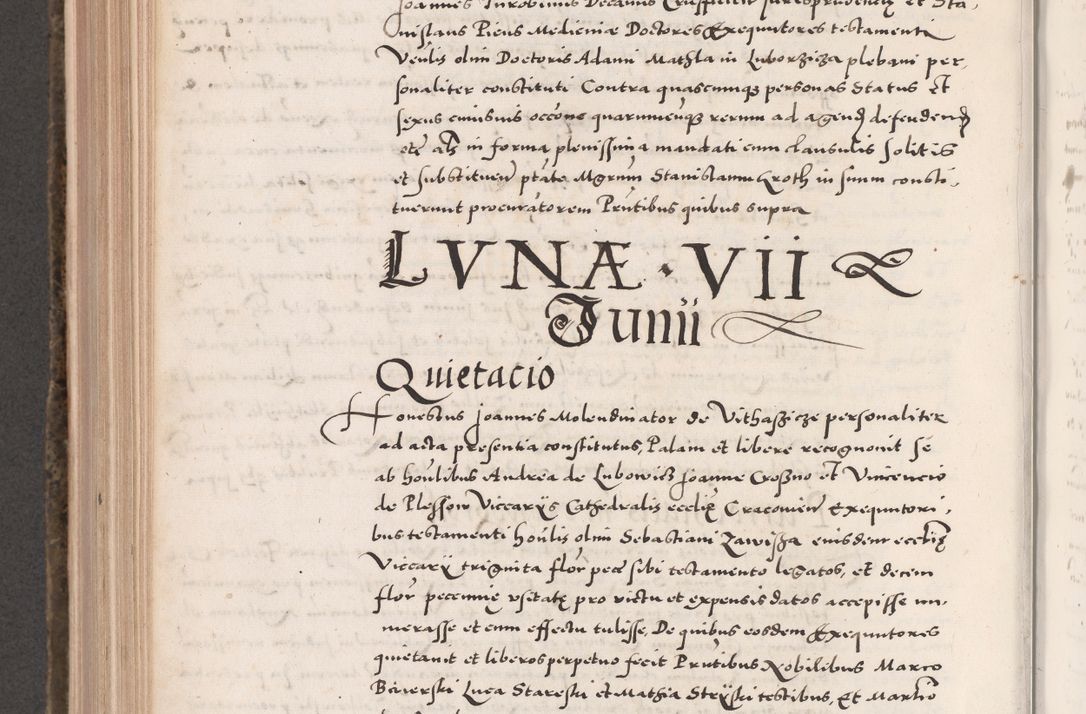 Joannes Decanus Jurisprudencię et Sta,
nislaus Picus Medicinæ Doctores Exequutores testamenti
Venlis olim Doctoris Adami in Luborzicza plebani per,
sonaliter constituti Contra quascumqȝ personas Status Et
sexus cuiusuis occone quarumcuqȝ rerum ad agend defendend
etc als in forma plenissima mandati cum clausulis solitis
et substituen ptate Mgrum Stanislaum Kroth in suum consti,
tuerunt procuratorem Pntibus quibus supra
LVNÆ · VII
Junii
Quietacio
Honestus Joannes Molendinator de personaliter
ad acta presentia constitutus, Palam et libere recognouit se
ab honlibus Andrea de Lubowicz Joanne Croszno et Vincencio
de Plessow Viccarijs Cathedralis ecclię Cracouien Exequutori,
bus testamenti honlis olim Sebastiani Zawisza eiusdem ecclię
Viccarij triginta flor pecc sibi testamento legatos, et decem
flor pecunię vsitatę pro victu et expensis datos accepisse nu,
merasse et cum effectu tulisse, De quibus eosdem Exequutores
quietauit et liberos perpetuo fecit Pntibus Nobilibus Marco
Luca Stareski et Mathia Stryiski testibus, Et Martio